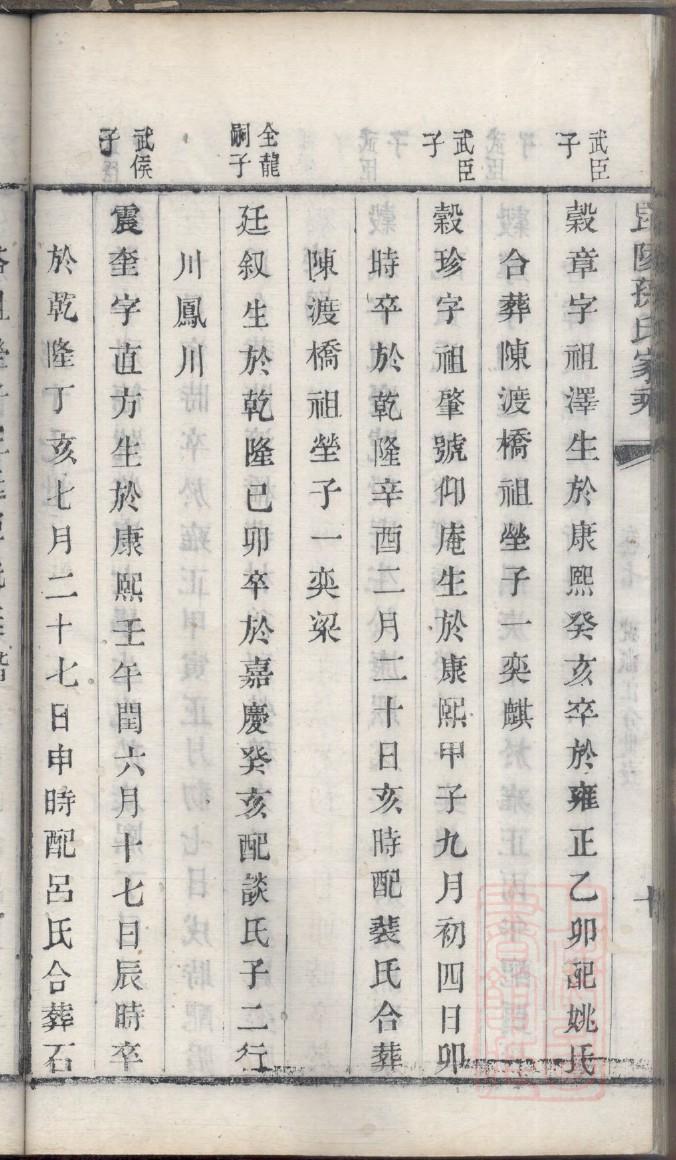 毘陵孫氏家乘
武臣
子
穀章字祖澤生於康熙癸亥卒於雍正乙卯配姚氏
合葬陳渡橋祖塋子一奕麒
武臣
子
穀珍字祖肇號仰庵生於康熙甲子九月初四日卯
時卒於乾隆辛酉二月二十日亥時配裴氏合葬
陳渡橋祖塋子一奕梁
全龍
嗣子
廷叙生於乾隆己卯卒於嘉慶癸亥配談氏子二行
川鳳川
武侯
子
震奎字直方生於康熙壬午閏六月十七日辰時卒
於乾隆丁亥七月二十七日申時配呂氏合葬石